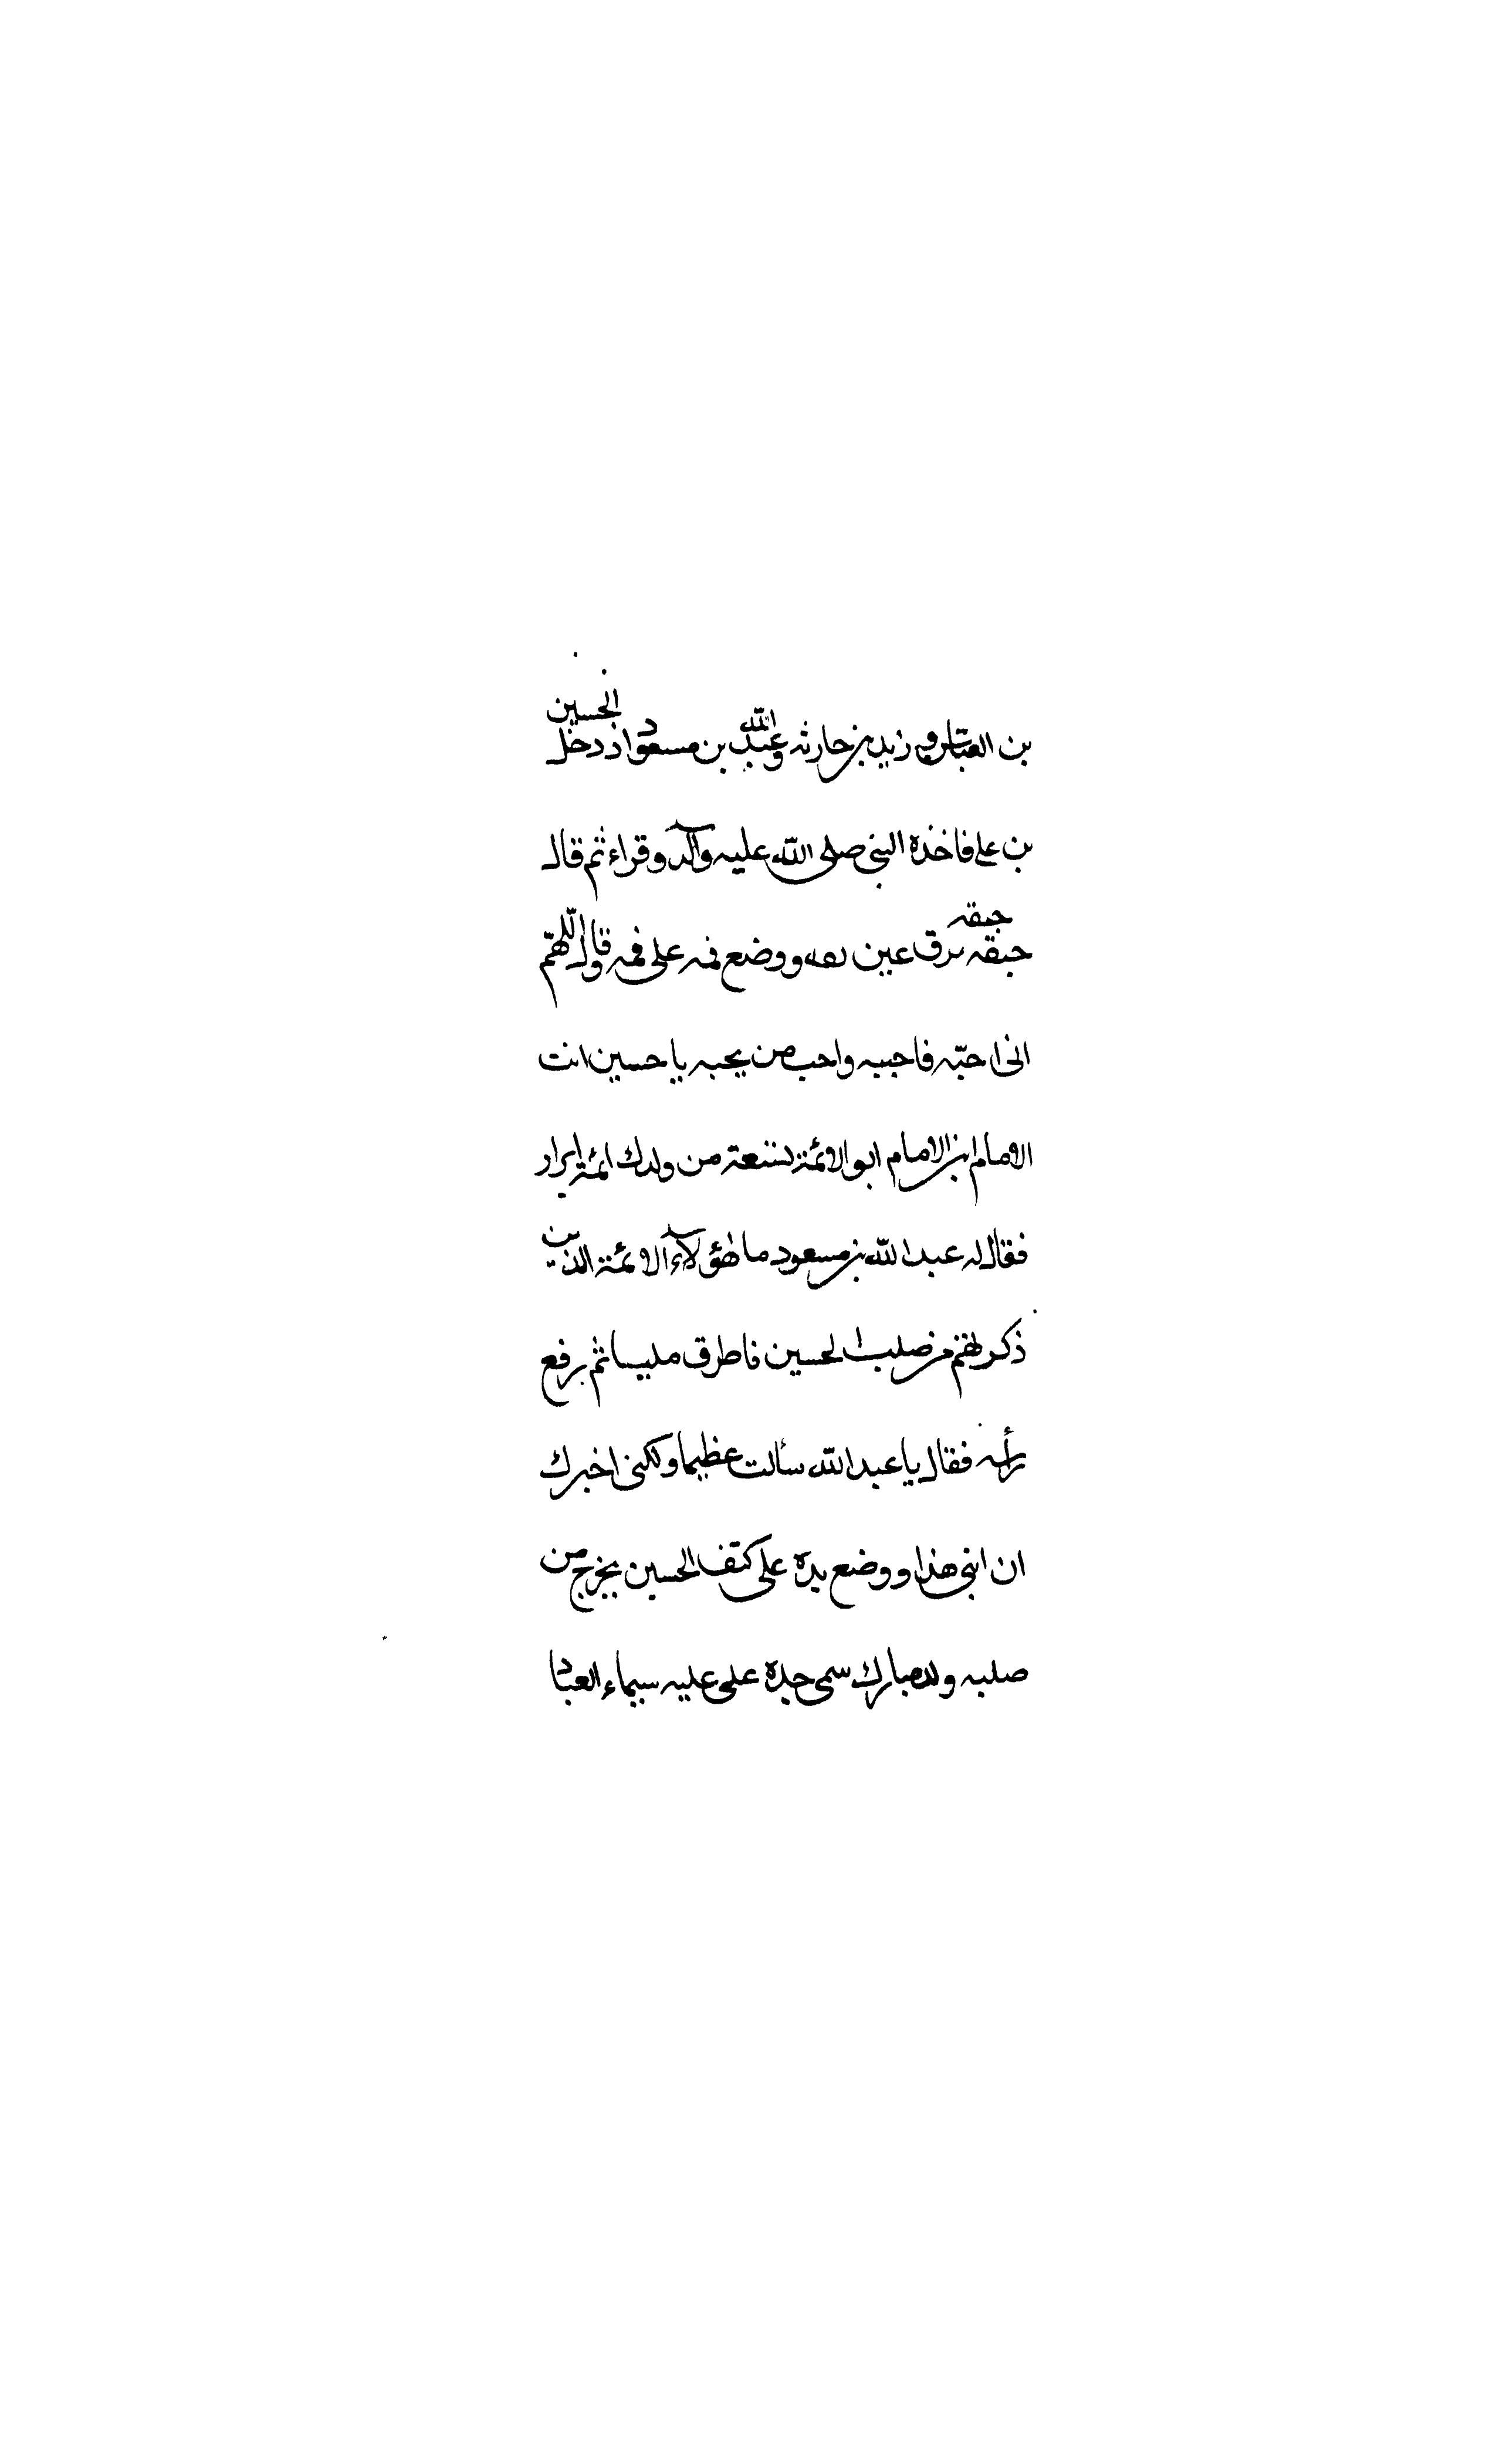 بن العباس و زيد بن حارثه و عبد الله بن مسعود اذ دخل الحسين
بن على فاخذه النبى صلى الله عليه وآله و قراء ثم قال
حبقه حبقه ترق عين بقه ووضع فمه على فمه وقال اللهم
انى احبه فاحببه واحب من يحبه يا حسين انت
الامام ابن الامام ابو الائمة تسعة من ولدك ائمة ابرار
فقال له عبد الله بن مسعود ما هؤلآء الائمة الذين
ذكرتهم من صلب الحسين فاطرق مليا ثم رفع
رأسه فقال يا عبد الله سألت عظيما ولكنى اخبرك
ان ابنى هذا ووضع يده على كتف الحسين يخرج من
صلبه ولد مبارك سمى جده على عليه سيماء العباد